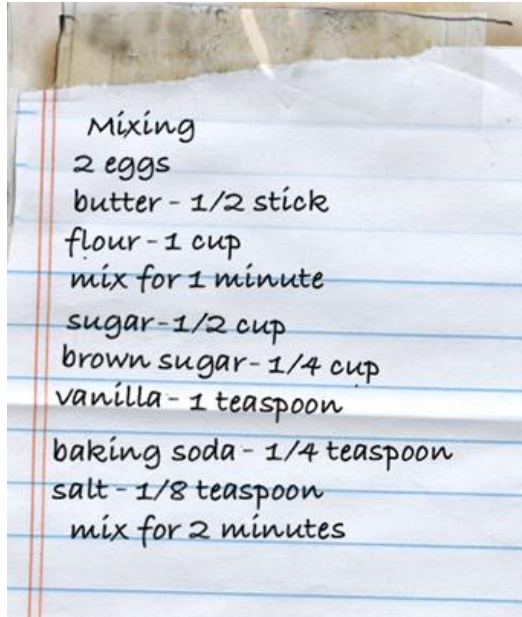 Mixing
2 eggs
butter - 1/2 stick
flour - 1 cup
mix for 1 minute
sugar - 1/2 cup
brown sugar - 1/4 cup
vanilla - 1 teaspoon
baking soda - 1/4 teaspoon
salt - 1/8 teaspoon
mix for 2 minutes